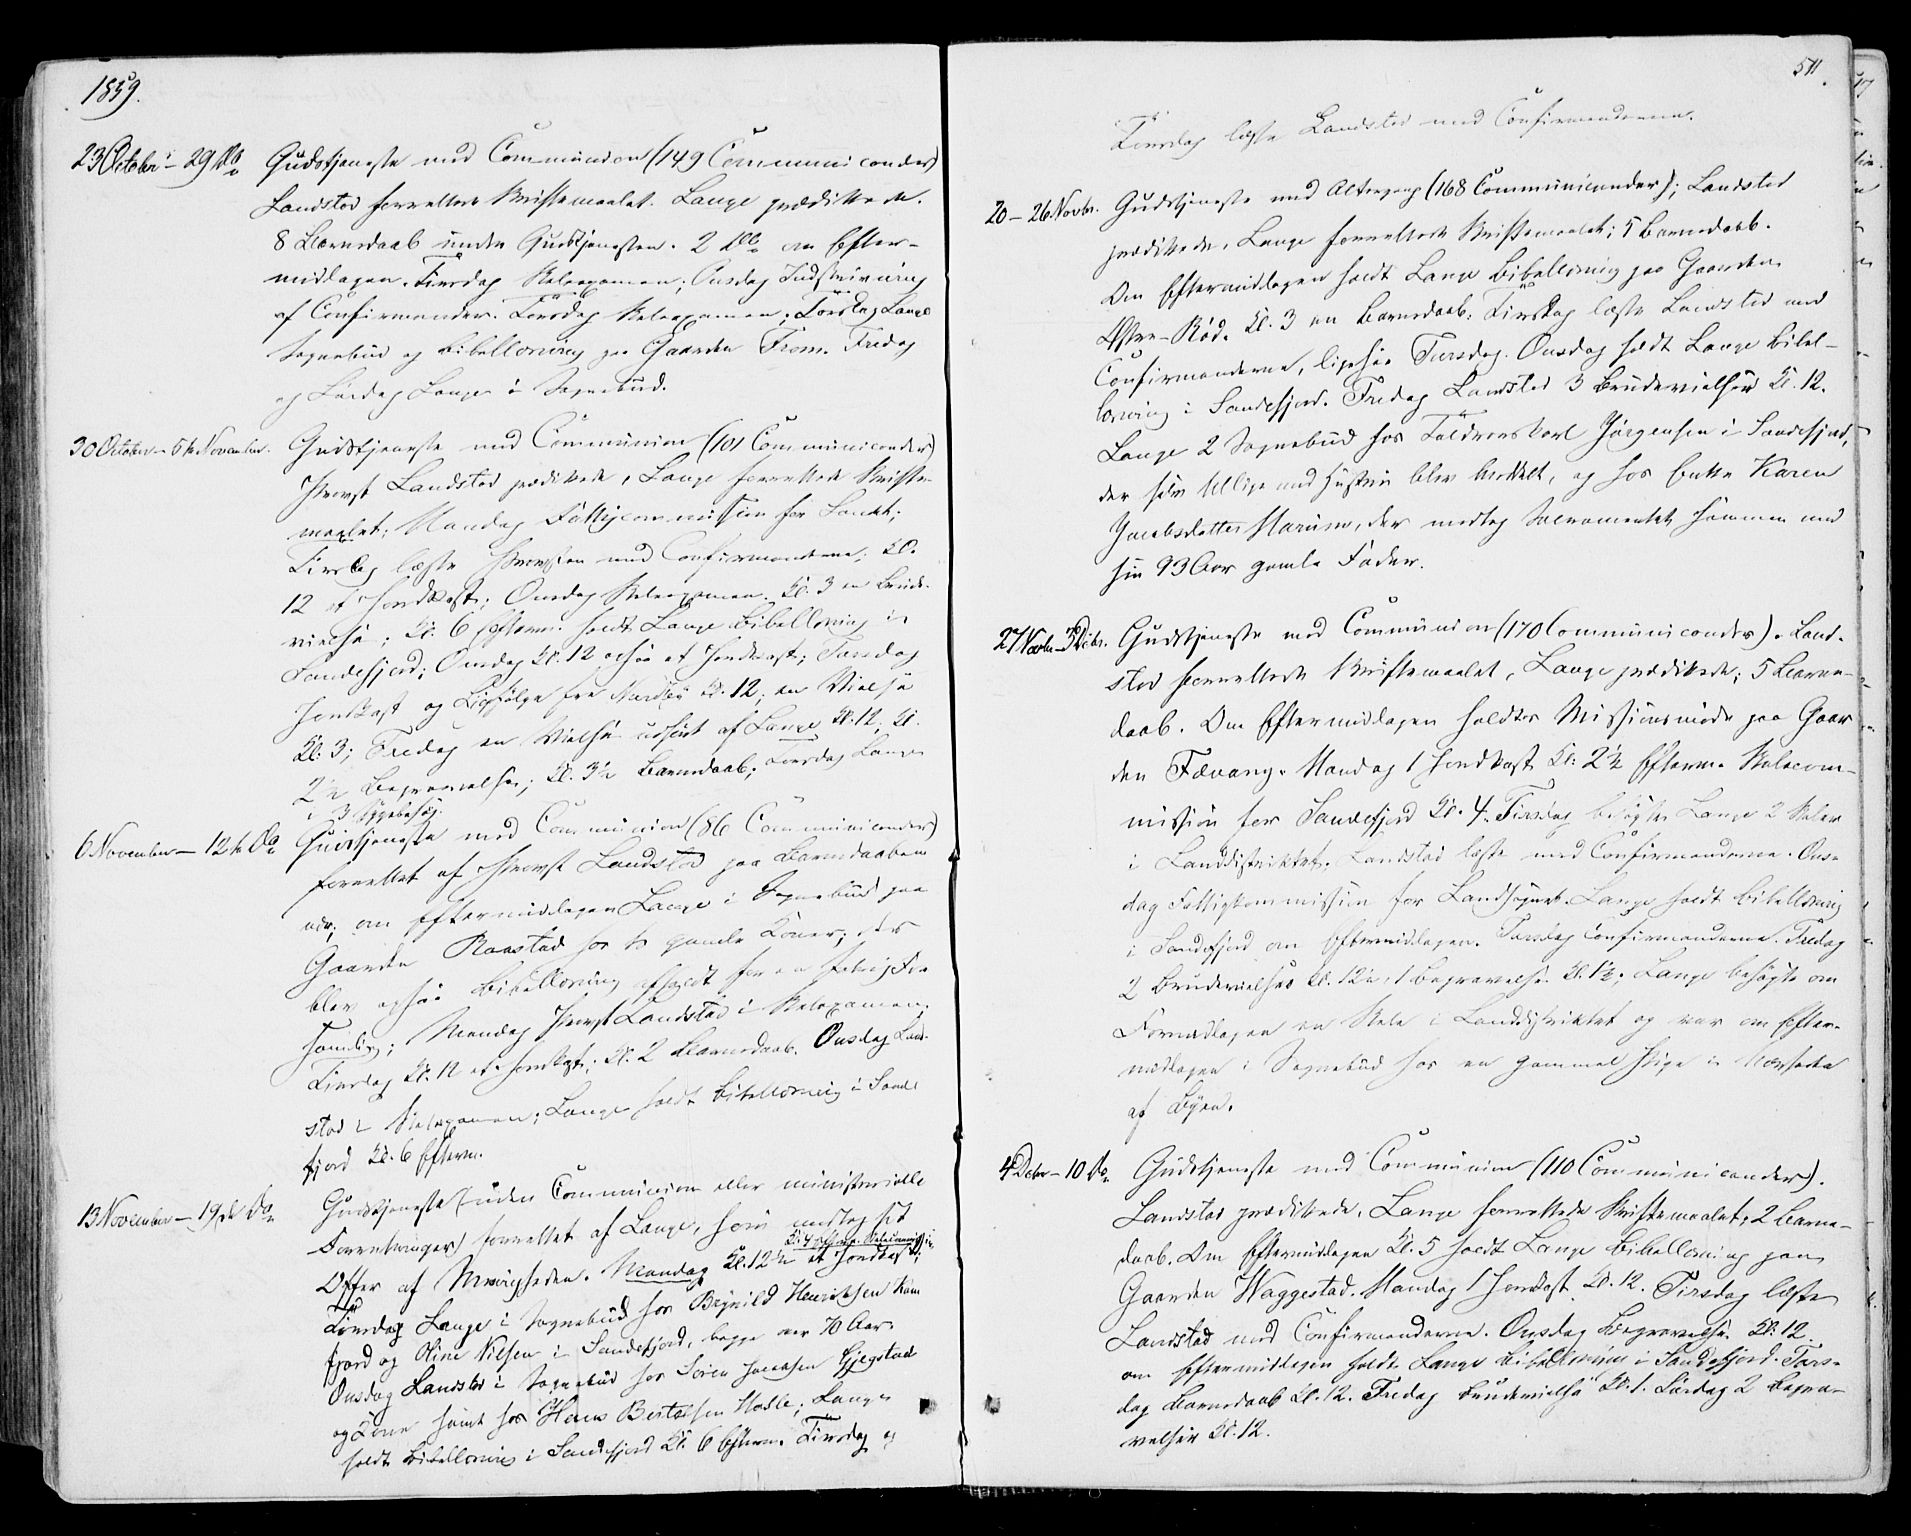 1859.
23 October – 29 Do
Gudstjeneste med Communion (149 Communicander)
Landstad forrettede Skriftemaalet. Lange prædikede.
8 Barnedaab under Gudstjenesten. 2 Do om Efter-
middagen. Tirsdag Skoleexamen; Onsdag Indskrivning
af Confirmander. Torsdag Skoleexamen; Torsdag Lange
Sognebud og Bibellæsning paa Gaarden Fram. Fredag
og Lørdag Lange i Sognebud.
30 October – 5te November.
Gudstjeneste med Communion (101 Communicander)
Provst Landstad prædikede, Lange forrettede Skrifte-
maalet; Mandag Fattigcommission for Landet;
Tirsdag læste Provsten med Confirmanderne; Kl.
12 et Jordkast; Onsdag Skoleexamen. Kl. 3 en Brude-
vielse; Kl. 6 Efterm. holdt Lange Bibellæsning i
Sandefjord; Onsdag Kl. 12 ogsaa et Jordkast; Torsdag
Jordkast og Ligfølge fra Kl. 12; en Vielse
Kl. 3; Fredag en Vielse udført af Lange Kl. 12, Kl.
2½ Begravelse; Kl. 3½ Barnedaab; Lange
i 3 Sygebesøg.
6 November – 12te Do
Gudstjeneste med Communion (86 Communicander)
forrettet af Provst Landstad paa Barnedaaben
nær; om Eftermiddagen Lange i Sognebud paa
Gaarden Raastad hos to gamle Koner; der
blev ogsaa Bibellæsning afholdt for en
Samling; Mandag Provst Landstad i Skoleexamen;
Tirsdag Kl. 12 et Jordkast; Kl. 2 Barnedaab. Onsdag Land-
stad i Skoleexamen; Lange holdt Bibellæsning i Sande
fjord Kl. 6 Efterm.
13 November – 19de Do
Gudstjeneste (uden Communion eller ministerielle
Forretninger) forrettet af Lange, som modtog sit
Offer af Menigheden. Mandag Kl. 12½ et Jordkast;
Kl. 4 Efterm.
Tirsdag Lange i Sognebud hos Brynild Henriksen Kam
fjord og Oline Nielsen i Sandefjord, begge over 70 Aar.
Onsdag Landstad i Sognebud hos Søren Jacobsen Gjegstad
og Kone samt hos Hans Bertelsen Hasle; Lange
holdt Bibellæsning i Sandefjord Kl. 6 Efterm. Tirsdag og
511.
Torsdag læste Landstad med Confirmanderne.
20 – 26 Novbr.
Gudstjeneste med Altergang (168 Communicander); Landstad
prædikede, Lange forrettede Skriftemaalet; 5 Barnedaab.
Om Eftermiddagen holdt Lange Bibellæsning paa Gaarden
Østre-Rød. Kl. 3 en Barnedaab. Tirsdag læste Landstad med
Confirmanderne, ligesaa Torsdag. Onsdag holdt Lange Bibel-
læsning i Sandefjord. Fredag Landstad 3 Brudevielser Kl. 12.
Lange 2 Sognebud hos Toldroerskarl Jørgensen i Sandefjord,
der selv tillige med Hustru blev, og hos Enken Karen
Jacobsdatter Marum, der modtog Sacramentet sammen med
sin 93 Aar gamle Fader.
27 Novbr – 3 Debr.
Gudstjeneste med Communion (170 Communicander). Land-
stad forrettede Skriftemaalet, Lange prædikede; 5 Barne-
daab. Om Eftermiddagen holdtes Missionsmøde paa Gaar
den Fævang. Mandag 1 Jordkast Kl. 2½ Efterm. Skolecom-
mission for Sandefjord Kl. 4. Tirsdag besøgte Lange 2 Skoler
i Landdistriktet, Landstad læste med Confirmanderne. Ons-
dag Fattigkommission for Landsognet. Lange holdt Bibellæsning
i Sandefjord om Eftermiddagen. Torsdag Confirmanderne. Fredag
2 Brudevielser Kl. 12 1 Begravelse Kl. 1½; Lange besøgte om
Formiddagen en Skole i Landdistriktet og var om Efter-
middagen i Sognebud hos en gammel Pige i Nærheden
af Byen.
4 Debr – 10 Do
Gudstjeneste med Communion (110 Communicander).
Landstad prædikede, Lange forrettede Skriftemaalet, 2 Barne-
daab. Om Eftermiddagen Kl. 5 holdt Lange Bibellæsning paa
Gaarden Waggestad. Mandag 1 Jordkast Kl. 12. Tirsdag læste
Landstad med Confirmanderne. Onsdag Begravelse Kl. 12.
om Eftermiddagen holdt Lange Bibellæsning i Sandefjord. Tors-
dag Barnedaab Kl. 12. Fredag Brudevielse Kl. 1. Lørdag 2 Begra-
velser Kl. 12.